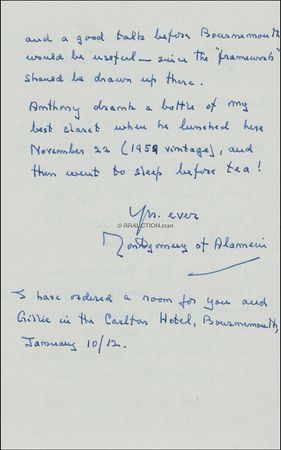 and a good talk before Bournemouth
would be useful — since the "framework"
should be drawn up there.
Anthony drank a bottle of my
best claret when he lunched here
November 22 (1959 vintage), and
then went to sleep before tea!
Yrs. ever
© RRAUCTION.com
Montgomery of Alamein
I have ordered a room for you and
in the Carlton Hotel, Bournemouth,
January 10/12.